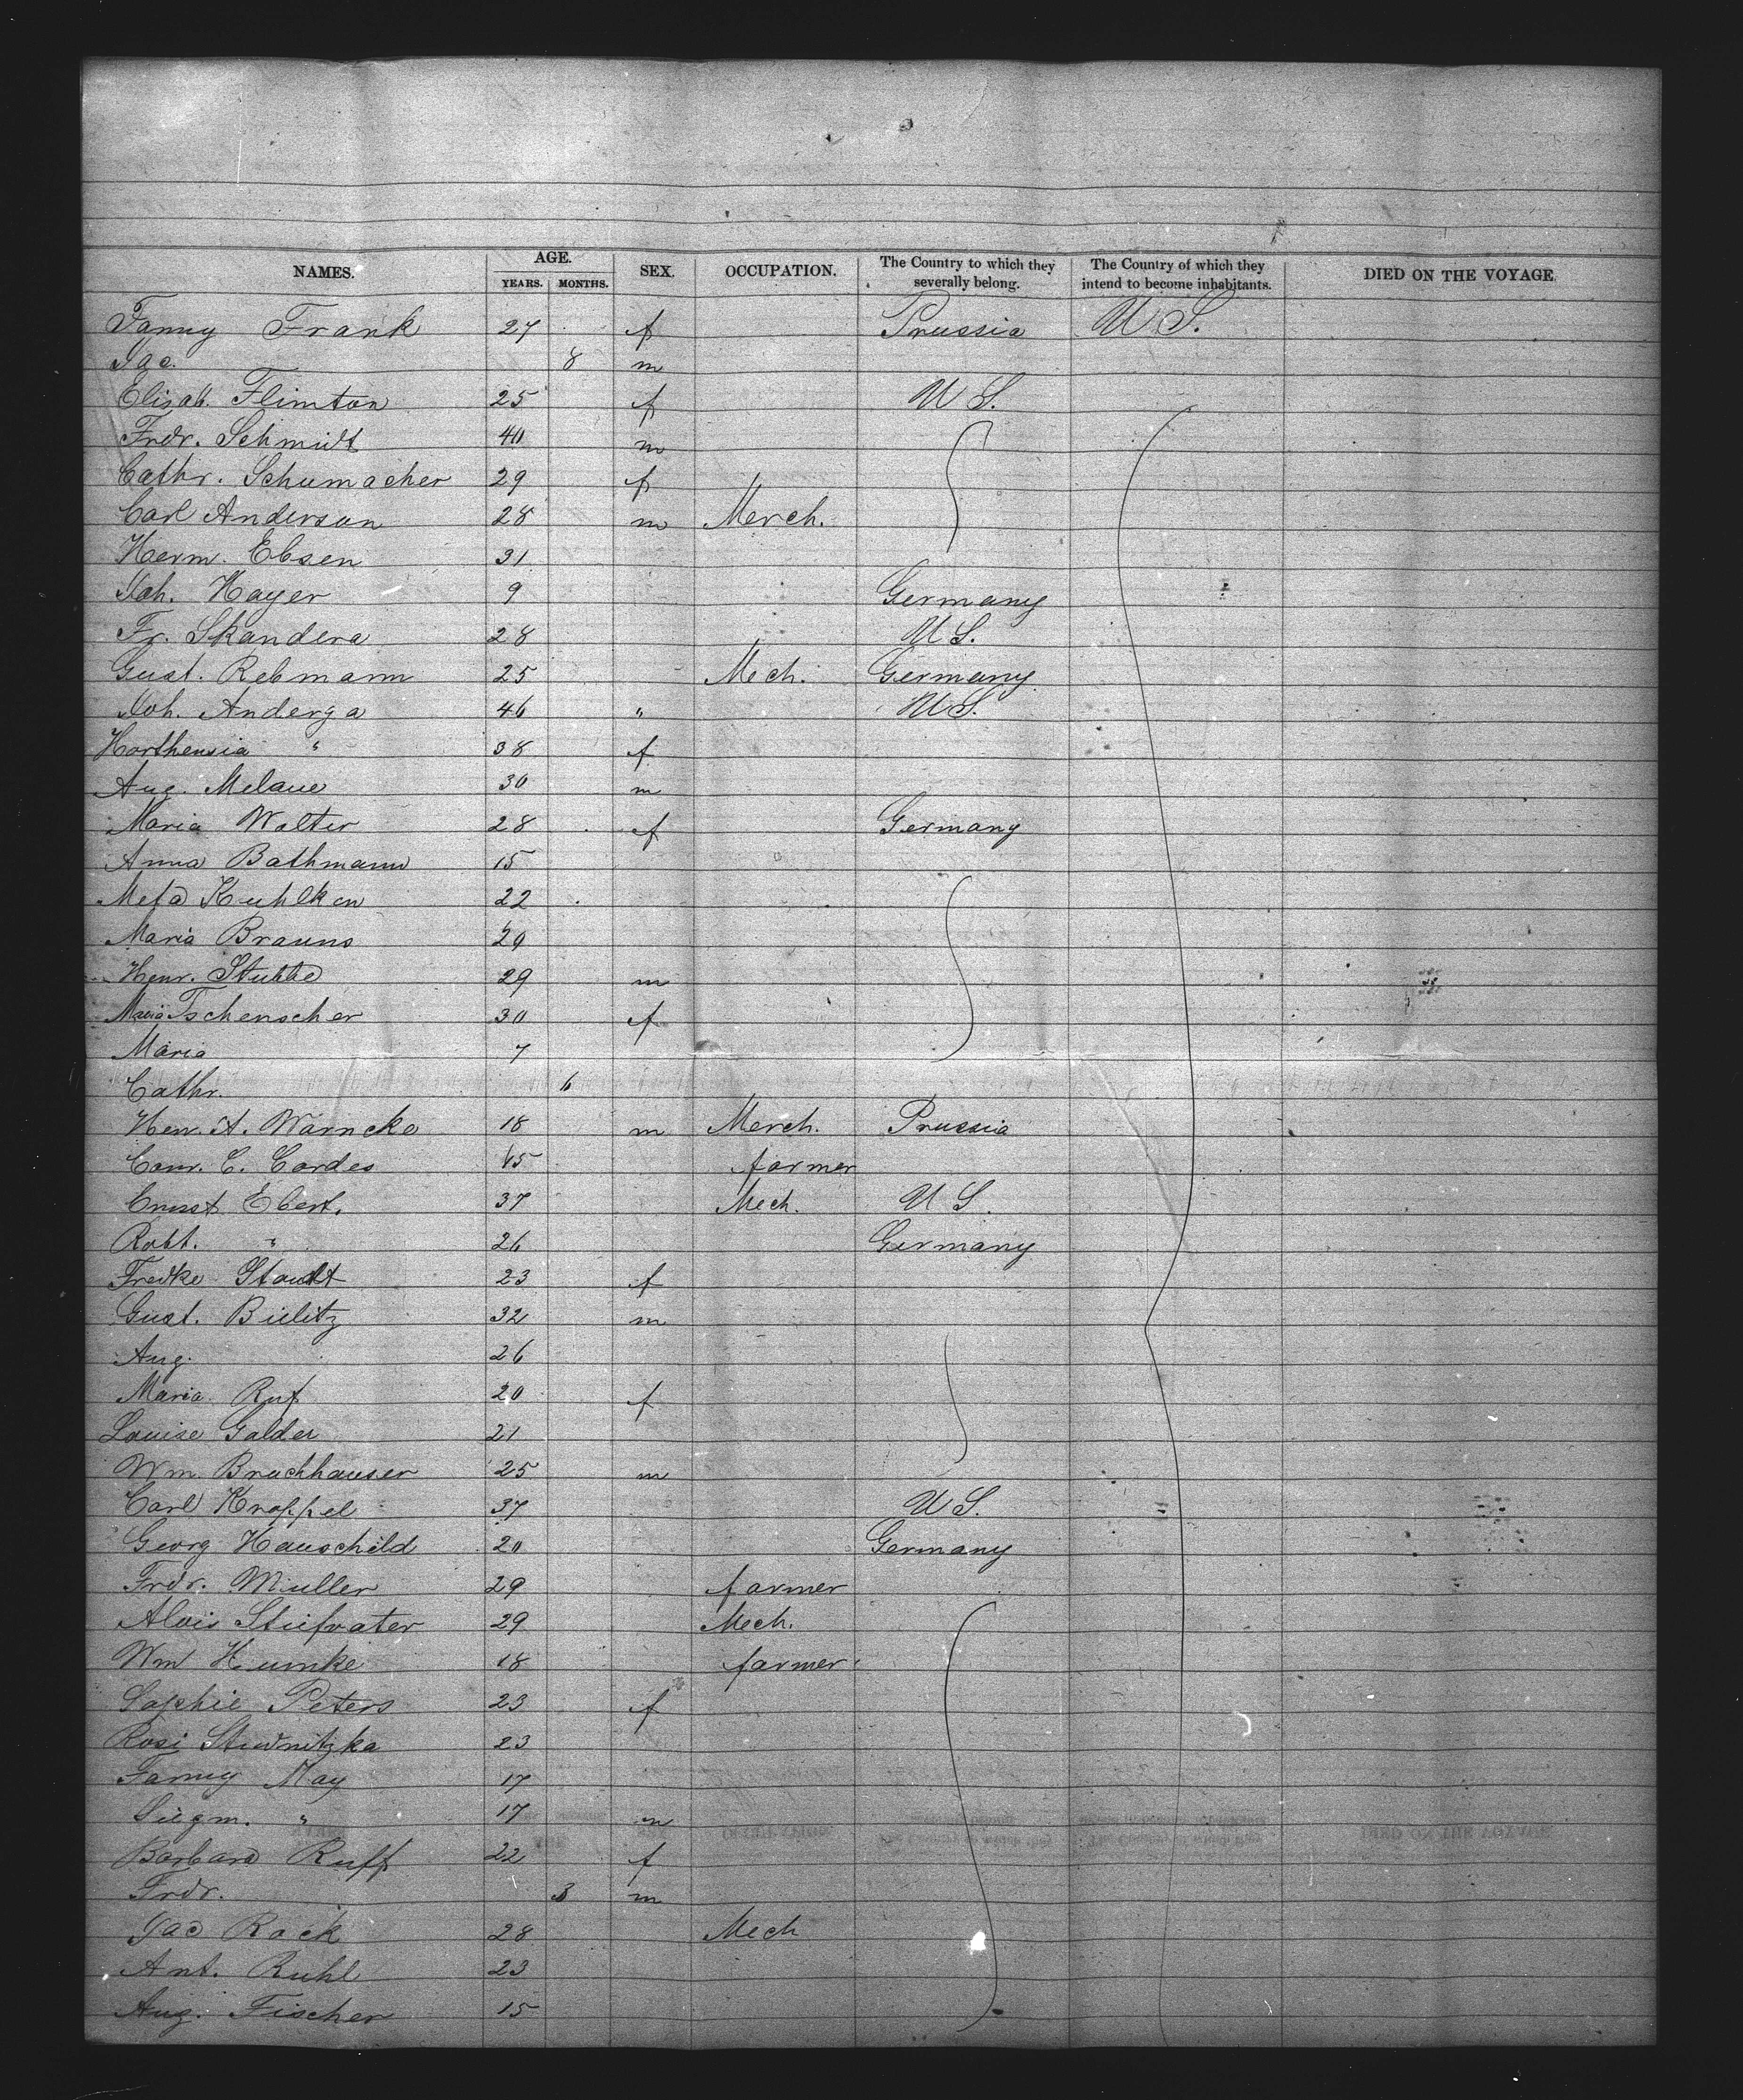 NAMES. AGE. YEARS. MONTHS. SEX. OCCUPATION. The Country to which they severally belong. The Country of which they intend to become inhabitants. DIED ON THE VOYAGE.
Fanny Frank 27 f Prussia U S.
Jac. 8 m
Elisab. Flimton 25 f U S.
Frdr. Schmidt 40 m
Cathr. Schumacher 29 f
Carl Anderson 28 m Merch.
Herm. Ebsen 31
Joh. Hayer 9 Germany
Fr. Skandera 28 U S.
Gust. Rebmann 25 Mech. Germany
Joh. Anderga 46 " U S.
Horthensia " 38 f
Aug. Melaue 30 m
Maria Walter 28 f Germany
Anna Bathmann 15
Meta Kuhlken 22
Maria Brauns 29
Henr. Stubbe 29 m
Maria Tschenscher 30 f
Maria 7
Cathr. 6
Hen. A. Warncke 18 m Merch. Prussia
Conr. C. Cordes 45 farmer
Ernst Ebert. 37 Mech. U S.
Robt. " 26 Germany
Fredke Staudt 23 f
Gust. Bielitz 32 m
Aug. 26
Maria Ruf 20 f
Louise Galder 21
Wm. Bruchhauser 25 m
Carl Kroppel 37 U S.
Georg Hauschild 20 Germany
Frdr. Muller 29 farmer
Alois Stiefvater 29 Mech.
Wm Humke 18 farmer
Sophie Peters 23 f
Rosi Studnitzka 23
Fanny May 17
Siegm. " 17 m
Barbara Ruff 22 f
Frdr. 3 m
Jac Rock 28 Mech
Ant. Ruhl 23
Aug. Fischer 15